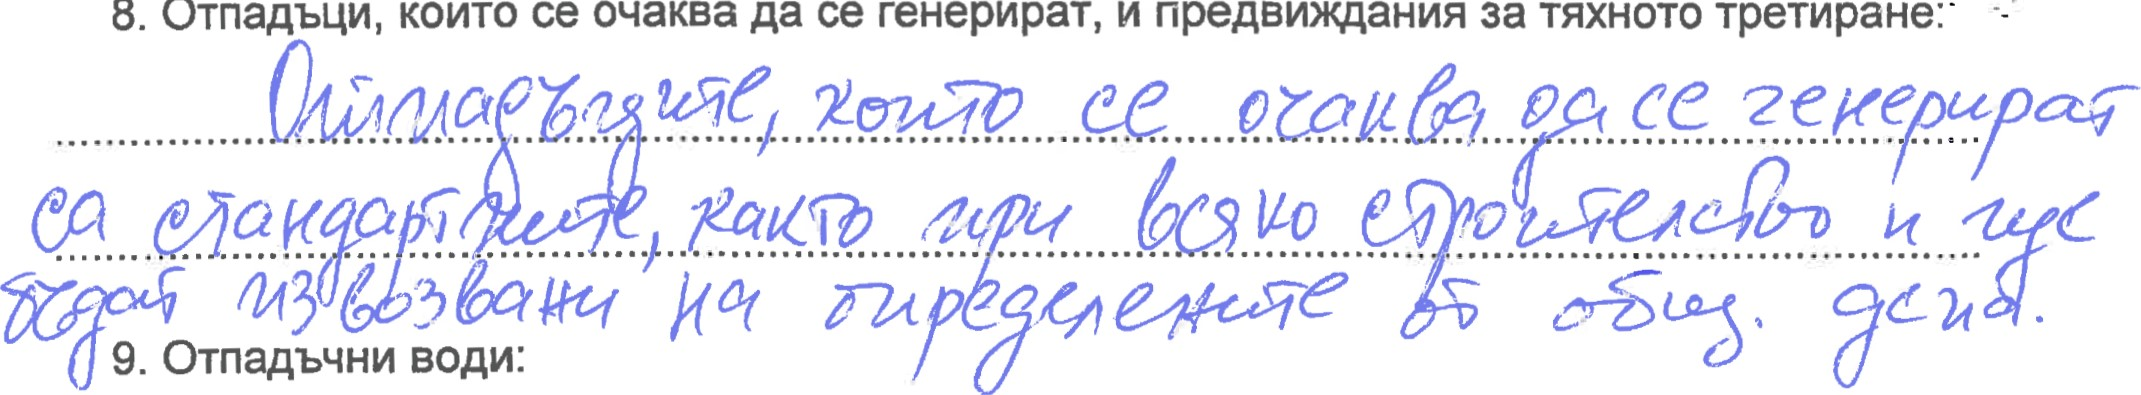 8. Отпадъци, които се очаква да се генерират, и предвиждания за тяхното третиране:
Отпадъците, които се очаква да се генерират
са стандартните, както при всяко строителство и ще
бъдат извозвани на определените от общ. депа.
9. Отпадъчни води: